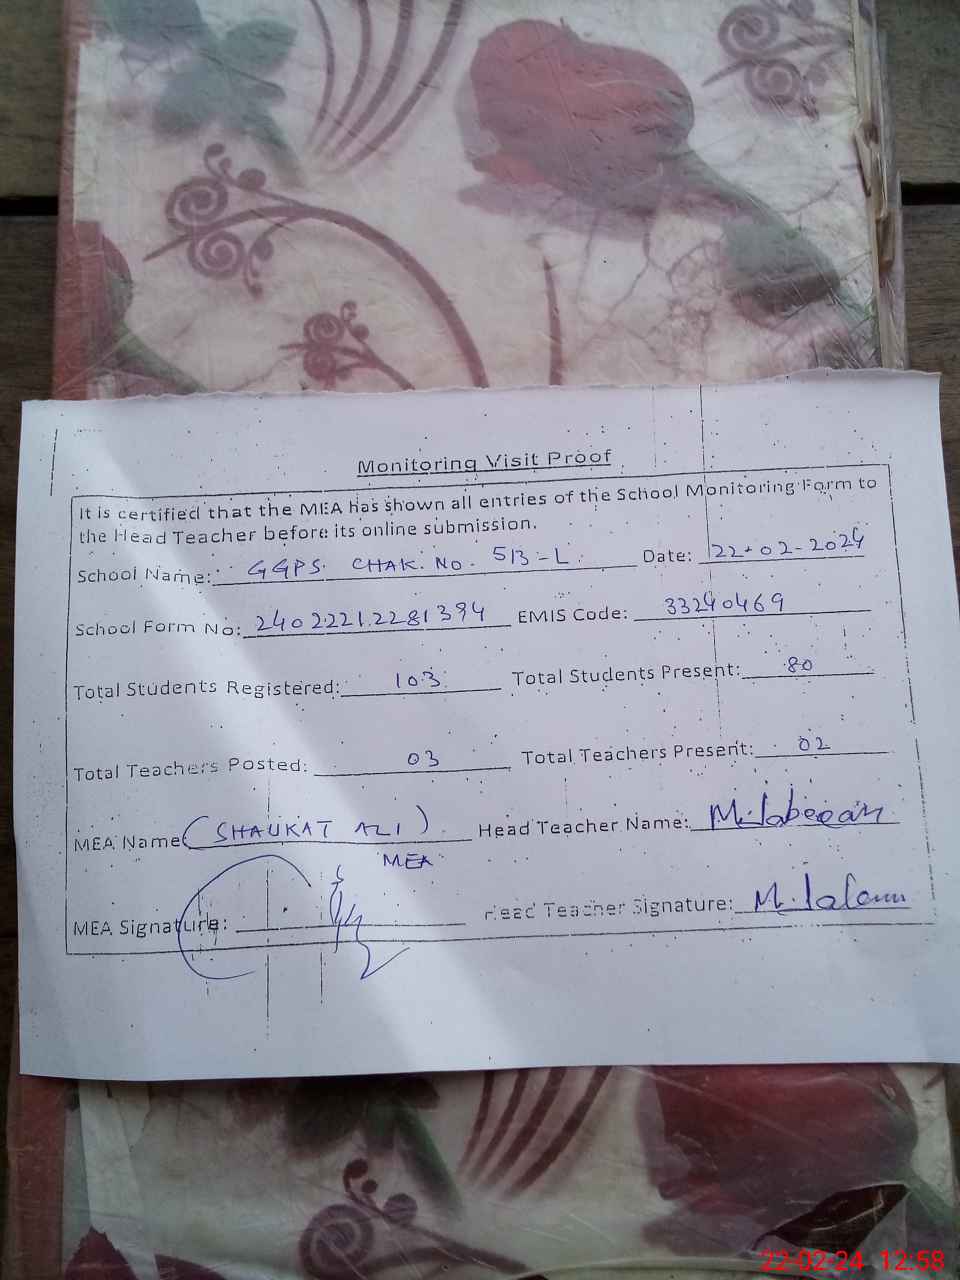 Monitoring Visit Proof
It is certified that the MEA has shown all entries of the School Monitoring Form to
the Head Teacher before its online submission.
School Name: GGPS. CHAK. NO. 513-L. Date: 22-02-2024
School Form No: 240222122281394 EMIS Code: 33240469
Total Students Registered: 103 Total Students Present: 80
Total Teachers Posted: 03 Total Teachers Present: 02
MEA Name (SHAUKAT ALI) Head Teacher Name: M.
MEA
MEA Signature: Head Teacher Signature: M.
22-02-24 12:58